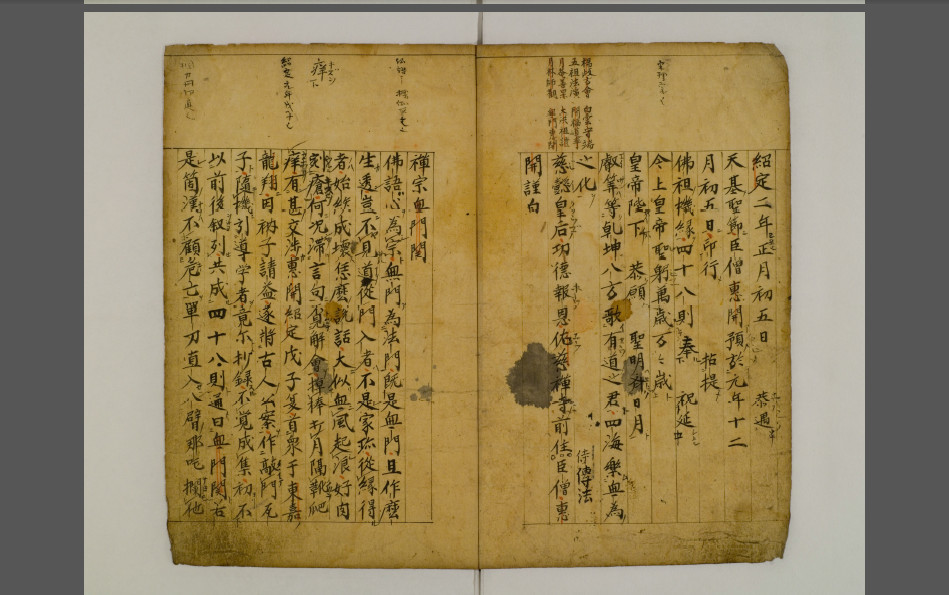 紹定二年正月初五日　恭遇
天基聖節臣僧惠開預於元年十二
月初五日印行　拈提
佛祖機緣四十八則奉　祝延
今上皇帝聖躬萬歳万〻歳
皇帝陛下　恭願　聖明齊日月
叡筭等乾坤八方歌有道之君四海樂無為
之化
慈懿皇后功德報恩佑慈禪寺前住傳法臣僧惠
開謹白
禅宗無門関
佛語心為宗無門為法門既是無門且作麼
生透豈不見道從門入者不是家珎從縁得
者始終成壊恁麼説話大似無風起浪好肉
剜瘡何况滞言句覔解會掉棒打月隔靴爬
痒有甚交渉惠開紹定戊子夏首衆于東嘉
龍翔因衲子請益遂將古人公案作敲門瓦
子隨機引導学者竟尓抄録不覚成集初不
以前後叙列共成四十八則通曰無門関若
是箇漢不顧危亡單刀直入八臂那吒攔他